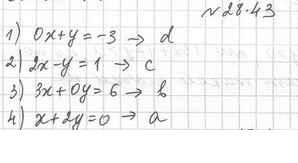 №28.43
1) 0x+y=-3 → d
2) 2x-y=1 → c
3) 3x+0y=6 → b
4) x+2y=0 → a